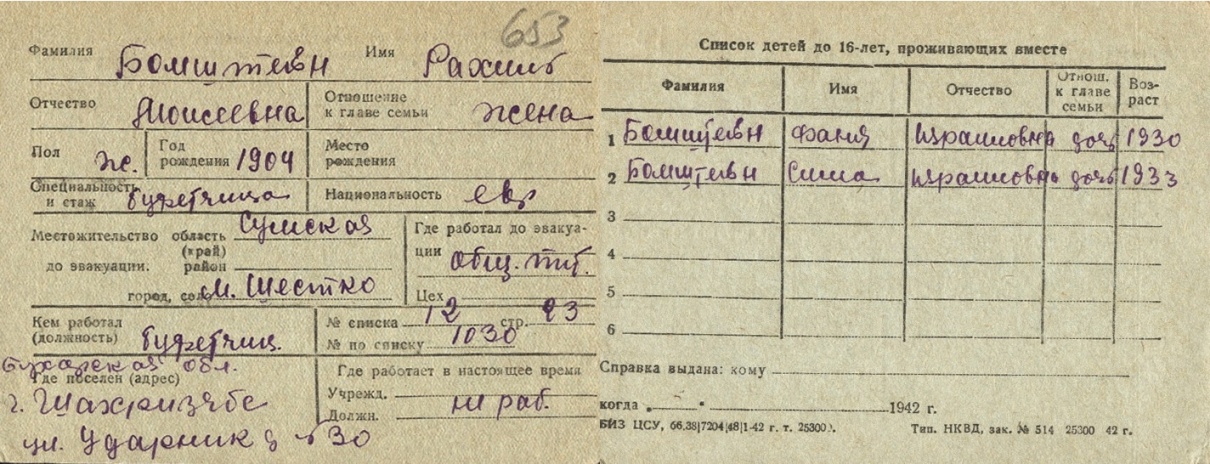 653
Фамилия Бомштейн Имя Рахиль
Отчество Моисеевна Отношение к главе семьи жена
Пол ж. Год рождения 1904 Место рождения
Специальность и стаж буфетчица Национальность евр
Местожительство область Сумская
(край)
до эвакуации. район
город, село м. Шестко
Где работал до эвакуа-
ции общ. пит.
Цех
Кем работал
(должность) буфетчиц.
№ списка 12 стр. 23
№ по списку 1030
Бухарская обл.
Где поселен (адрес)
г. Шахризябс
ул. Ударник д №30
Где работает в настоящее время
Учрежд.
Должн. не раб.
Список детей до 16-лет, проживающих вместе
Фамилия Имя Отчество Отнош. к главе семьи Воз-раст
1 Бомштейн Фаня Израиловна дочь 1930
2 Бомштейн Сима Израиловна дочь 1933
3
4
5
6
Справка выдана: кому
когда „ “ 1942 г.
БИЗ ЦСУ, 66,38|7204|48|1-42 г. т. 25300). Тип. НКВД, зак. № 514 25300 42 г.